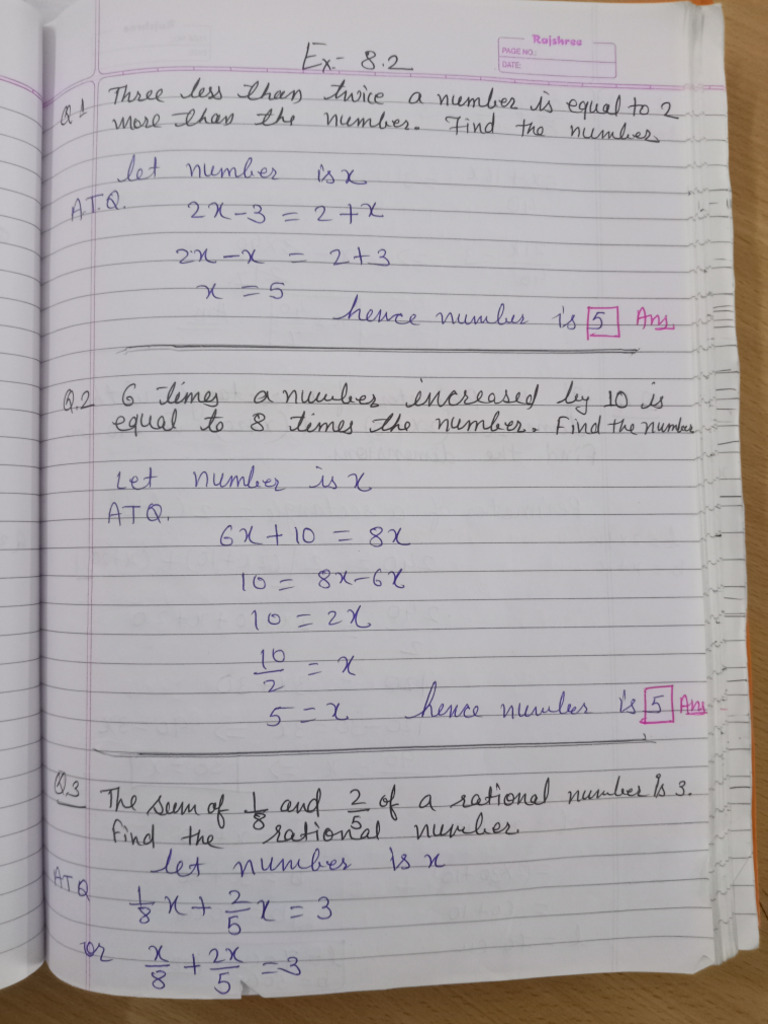 Rajshree
PAGE NO.:
DATE:
Ex.- 8.2
Q1 Three less than twice a number is equal to 2
more than the number. Find the number
let number is x
A.T.Q. 2x-3 = 2+x
2x-x = 2+3
x = 5
hence number is 5 Ans
Q.2 6 times a number increased by 10 is
equal to 8 times the number. Find the number
Let number is x
ATQ.
6x+10 = 8x
10 = 8x-6x
10 = 2x
10/2 = x
5 = x hence number is 5 Ans
Q.3 The sum of 1/8 and 2/5 of a rational number is 3.
find the rational number
let number is x
ATQ 1/8 x + 2/5 x = 3
or x/8 + 2x/5 = 3